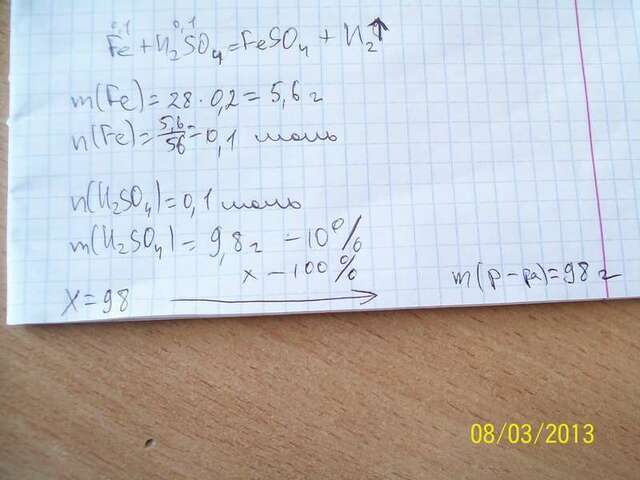 0,1 0,1
Fe + H₂SO₄ = FeSO₄ + H₂↑
m(Fe) = 28 · 0,2 = 5,6 г
n(Fe) = 5,6/56 = 0,1 моль
n(H₂SO₄) = 0,1 моль
m(H₂SO₄) = 9,8 г – 10%
x – 100%
X = 98 → m(р-ра) = 98 г
08/03/2013